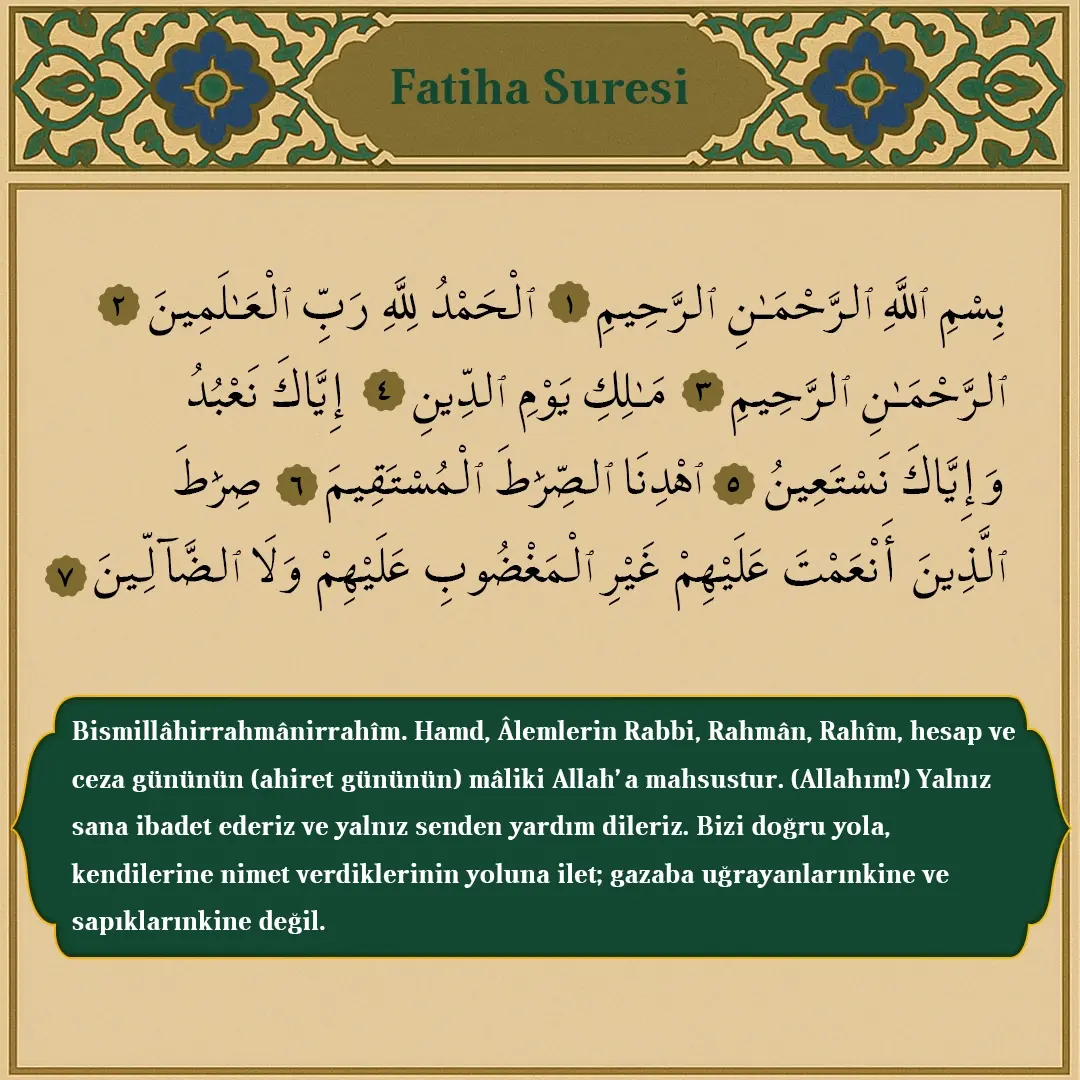 Fatiha Suresi
بِسْمِ ٱللَّهِ ٱلرَّحْمَـٰنِ ٱلرَّحِيمِ ١ ٱلْحَمْدُ لِلَّهِ رَبِّ ٱلْعَـٰلَمِينَ ٢
ٱلرَّحْمَـٰنِ ٱلرَّحِيمِ ٣ مَـٰلِكِ يَوْمِ ٱلدِّينِ ٤ إِيَّاكَ نَعْبُدُ
وَإِيَّاكَ نَسْتَعِينُ ٥ ٱهْدِنَا ٱلصِّرَٰطَ ٱلْمُسْتَقِيمَ ٦ صِرَٰطَ
ٱلَّذِينَ أَنْعَمْتَ عَلَيْهِمْ غَيْرِ ٱلْمَغْضُوبِ عَلَيْهِمْ وَلَا ٱلضَّآلِّينَ ٧
Bismillâhirrahmânirrahîm. Hamd, Âlemlerin Rabbi, Rahmân, Rahîm, hesap ve
ceza gününün (ahiret gününün) mâliki Allah’a mahsustur. (Allahım!) Yalnız
sana ibadet ederiz ve yalnız senden yardım dileriz. Bizi doğru yola,
kendilerine nimet verdiklerinin yoluna ilet; gazaba uğrayanlarınkine ve
sapıklarınkine değil.